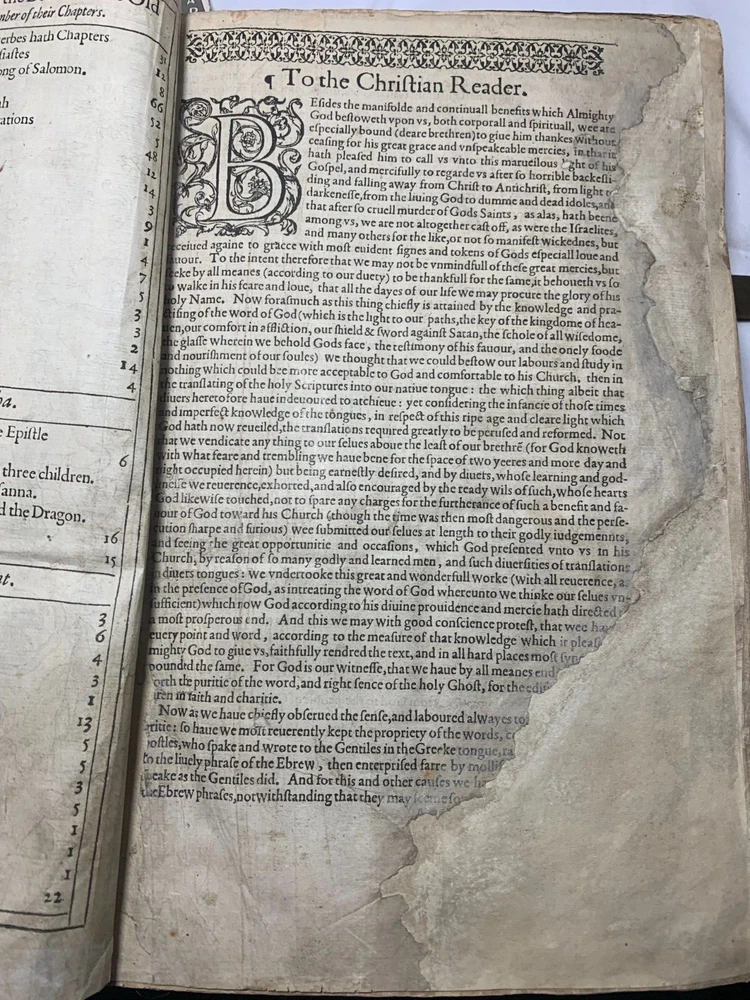 Old
mber of their Chapters.
erbes hath Chapters 31
siastes 12
ong of Salomon. 8
66
ah 52
ations 5
48
12
14
3
9
1
4
7
5
3
3
2
14
4
e Epistle
6
three children.
sanna.
d the Dragon.
16
15
3
6
4
3
1
13
5
5
3
5
1
1
1
22
¶ To the Christian Reader.
BEsides the manifolde and continuall benefits which Almighty
God bestoweth vpon vs, both corporall and spirituall, wee are
especially bound (deare brethren) to giue him thankes without
ceasing for his great grace and vnspeakeable mercies, in that it
hath pleased him to call vs vnto this marueilous ght of his
Gospel, and mercifully to regarde vs after so horrible backesli-
ding and falling away from Christ to Antichrist, from light to
darkenesse, from the liuing God to dumme and dead idoles, and
that after so cruell murder of Gods Saints, as alas, hath beene
among vs, we are not altogether cast off, as were the Israelites,
and many others for the like, or not so manifest wickednes, but
eceiued againe to gracce with most euident signes and tokens of Gods especiall loue and
auour. To the intent therefore that we may not be vnmindfull of these great mercies, but
eeke by all meanes (according to our duety) to be thankfull for the same, it behoueth vs so
o walke in his feare and loue, that all the dayes of our life we may procure the glory of his
holy Name. Now forasmuch as this thing chiefly is attained by the knowledge and pra-
ctising of the word of God (which is the light to our paths, the key of the kingdome of hea-
uen, our comfort in affliction, our shield & sword against Satan, the schole of all wisedome,
the glasse wherein we behold Gods face, the testimony of his fauour, and the onely foode
and nourishment of our soules) we thought that we could bestow our labours and study in
nothing which could bee more acceptable to God and comfortable to his Church, then in
the translating of the holy Scriptures into our natiue tongue: the which thing albeit that
diuers heretofore haue indeuoured to atchieue: yet considering the infancie of those times
and imperfect knowledge of the tongues, in respect of this ripe age and cleare light which
God hath now reueiled, the translations required greatly to be perused and reformed. Not
that we vendicate any thing to our selues aboue the least of our brethrē (for God knoweth
with what feare and trembling we haue bene for the space of two yeeres and more day and
night occupied herein) but being earnestly desired, and by diuers, whose learning and god-
linesse we reuerence, exhorted, and also encouraged by the ready wils of such, whose hearts
God likewise touched, not to spare any charges for the furtherance of such a benefit and fa-
uour of God toward his Church (though the time was then most dangerous and the perse-
cution sharpe and furious) wee submitted our selues at length to their godly iudgements,
and seeing the great opportunitie and occasions, which God presented vnto vs in his
Church, by reason of so many godly and learned men, and such diuersities of translations
in diuers tongues: we vndertooke this great and wonderfull worke (with all reuerence, a
in the presence of God, as intreating the word of God whereunto we thinke our selues vn-
sufficient) which now God according to his diuine prouidence and mercie hath directed
a most prosperous end. And this we may with good conscience protest, that wee ha
euery point and word, according to the measure of that knowledge which it pleas
mighty God to giue vs, faithfully rendred the text, and in all hard places most syn
pounded the same. For God is our Witnesse, that we haue by all meanes end
orth the puritie of the word, and right sence of the holy Ghost, for the edi
ren in faith and charitie.
Now as we haue chiefly obserued the sense, and laboured alwayes to
gritie: so haue we most reuerently kept the propriety of the words, c
postles, who spake and wrote to the Gentiles in the Greeke tongue, ra
to the liuely phrase of the Ebrew, then enterprised farre by molli
speake as the Gentiles did. And for this and other causes we ha
the Ebrew phrases, notwithstanding that they may seeme so